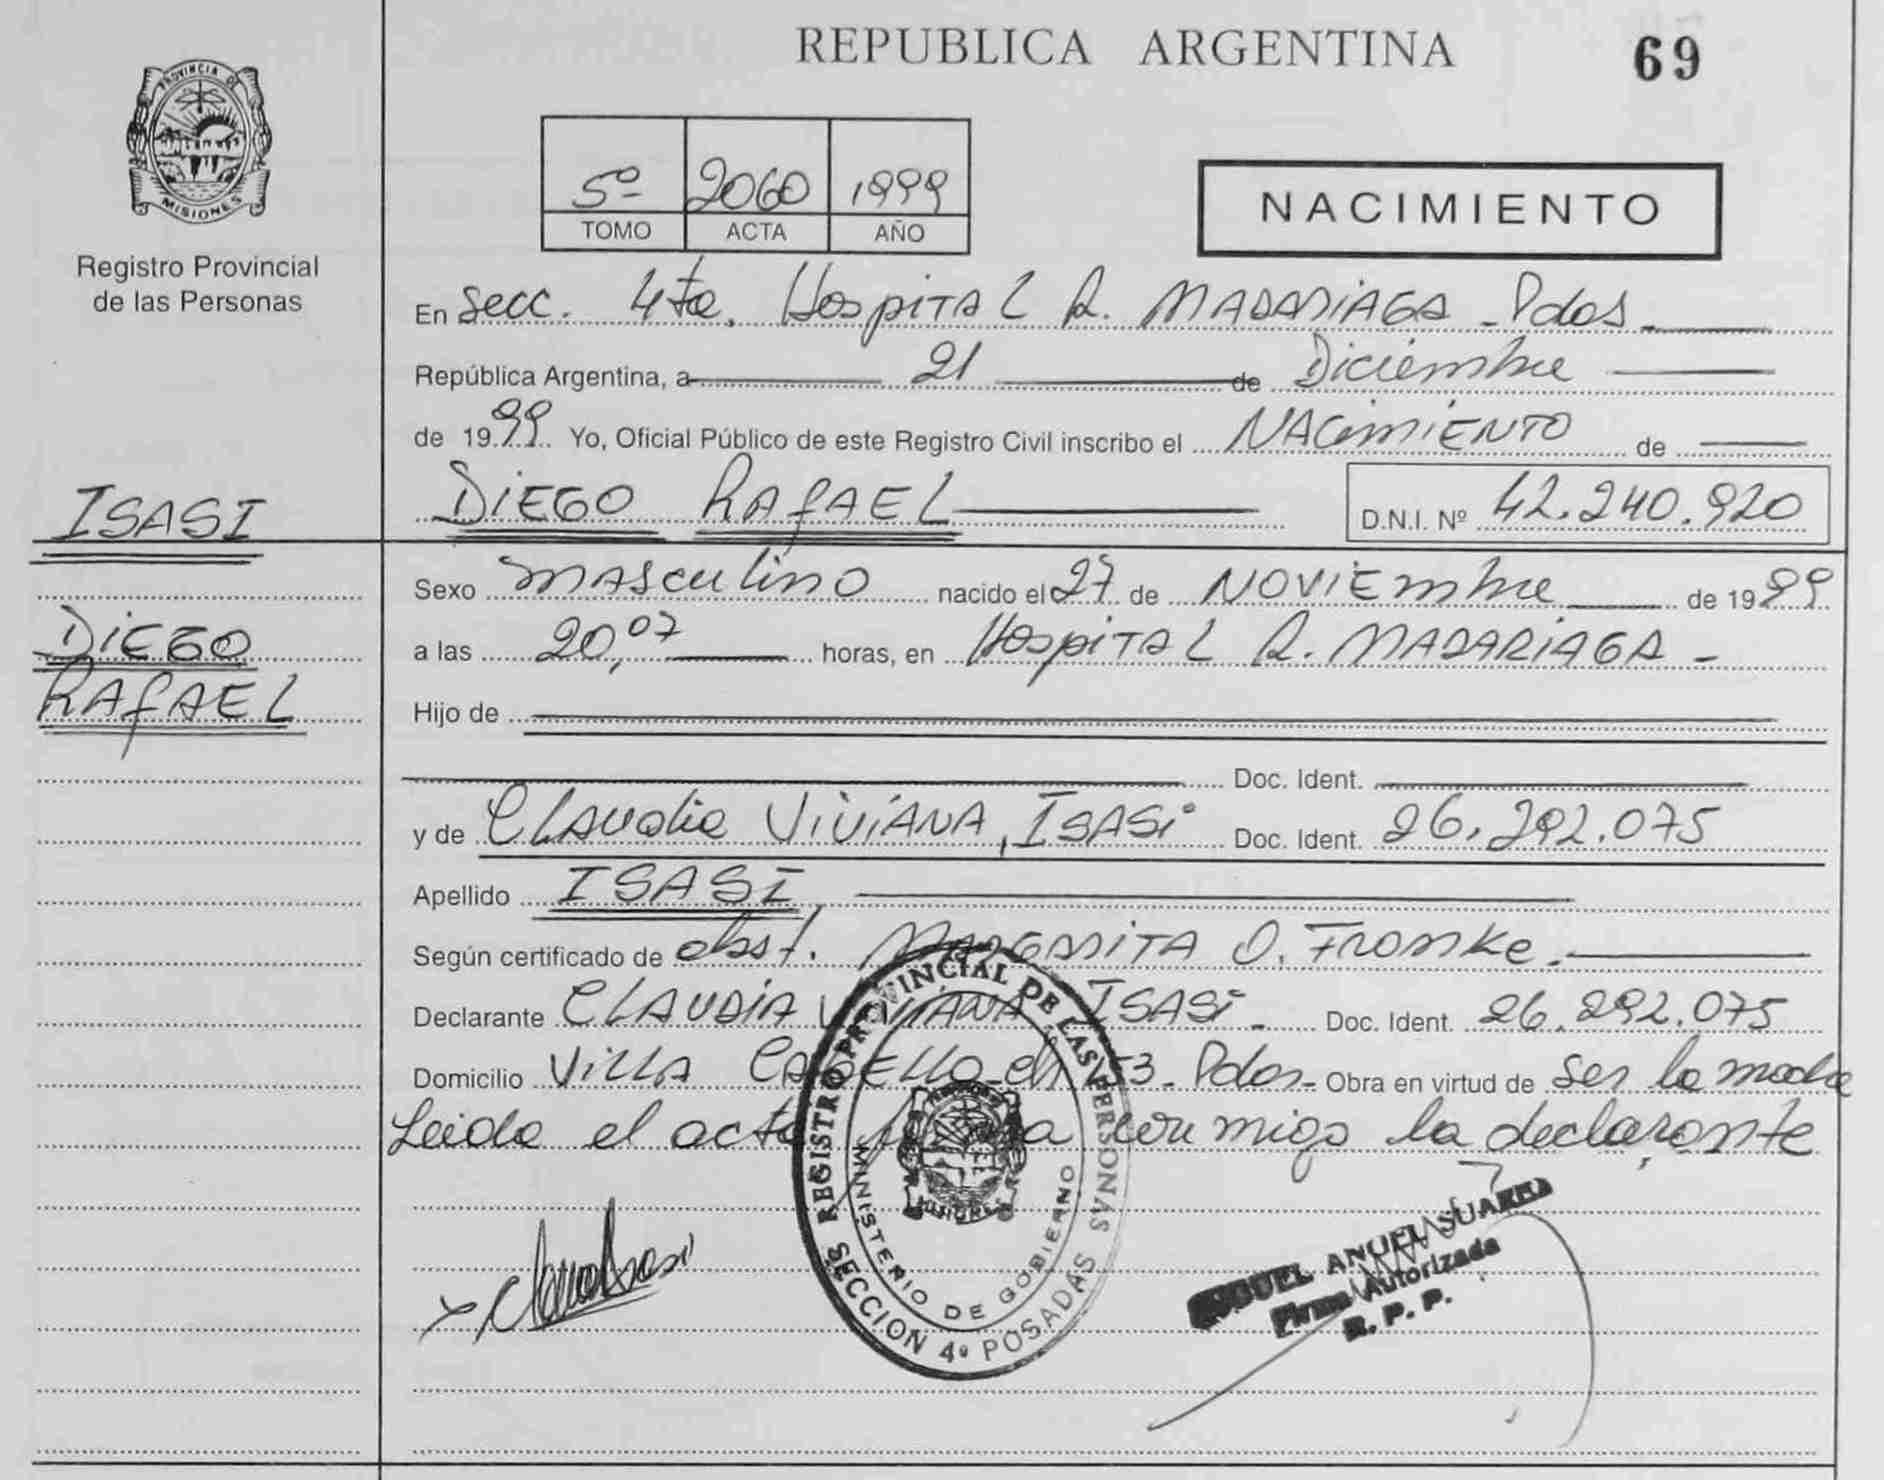 REPUBLICA ARGENTINA
69
PROVINCIA DE
MISIONES
Registro Provincial
de las Personas
5º 2060 1999
TOMO ACTA AÑO
NACIMIENTO
En Secc. 4ta. Hospital R. MADARIAGA - Pdas
República Argentina, a 21 de Diciembre
de 1999 Yo, Oficial Público de este Registro Civil inscribo el NACIMIENTO de
ISASI
DIEGO RAFAEL
D.N.I. Nº 42.240.920
Sexo masculino nacido el 27 de NOVIEmbre de 1999
DIEGO
a las 20,07 horas, en Hospital R. MADARIAGA -
RAFAEL
Hijo de
Doc. Ident.
y de CLAudia ViViANA, ISASi Doc. Ident. 26.292.075
Apellido ISASI
Según certificado de obst. MARGARITA O. FRomKe.
Declarante CLAUDIA ViViANA ISASi - Doc. Ident. 26.292.075
Domicilio ViLLA CABELLO 53 - Pdas - Obra en virtud de ser la madre
Leida el acta firma conmigo la declarante
REGISTRO PROVINCIAL DE LAS PERSONAS
MINISTERIO DE GOBIERNO
MISIONES
SECCION 4º POSADAS
MIGUEL ANGEL SUAREZ
Firma Autorizada
R. P. P.